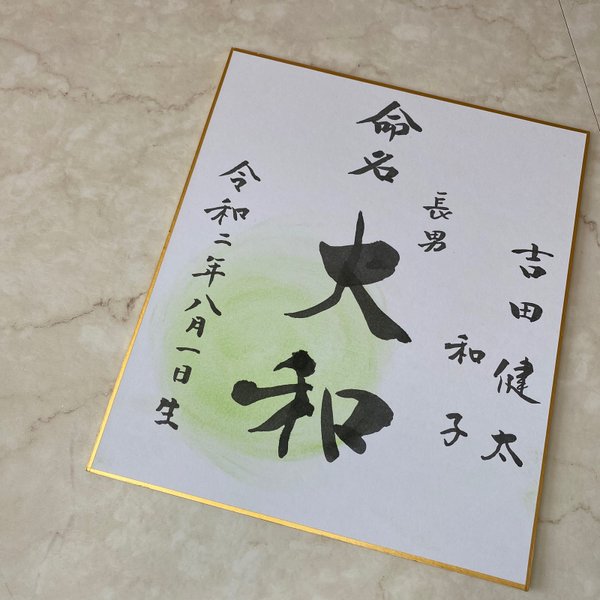 吉田健太
和子
長男
命名
大和
令和二年八月一日生